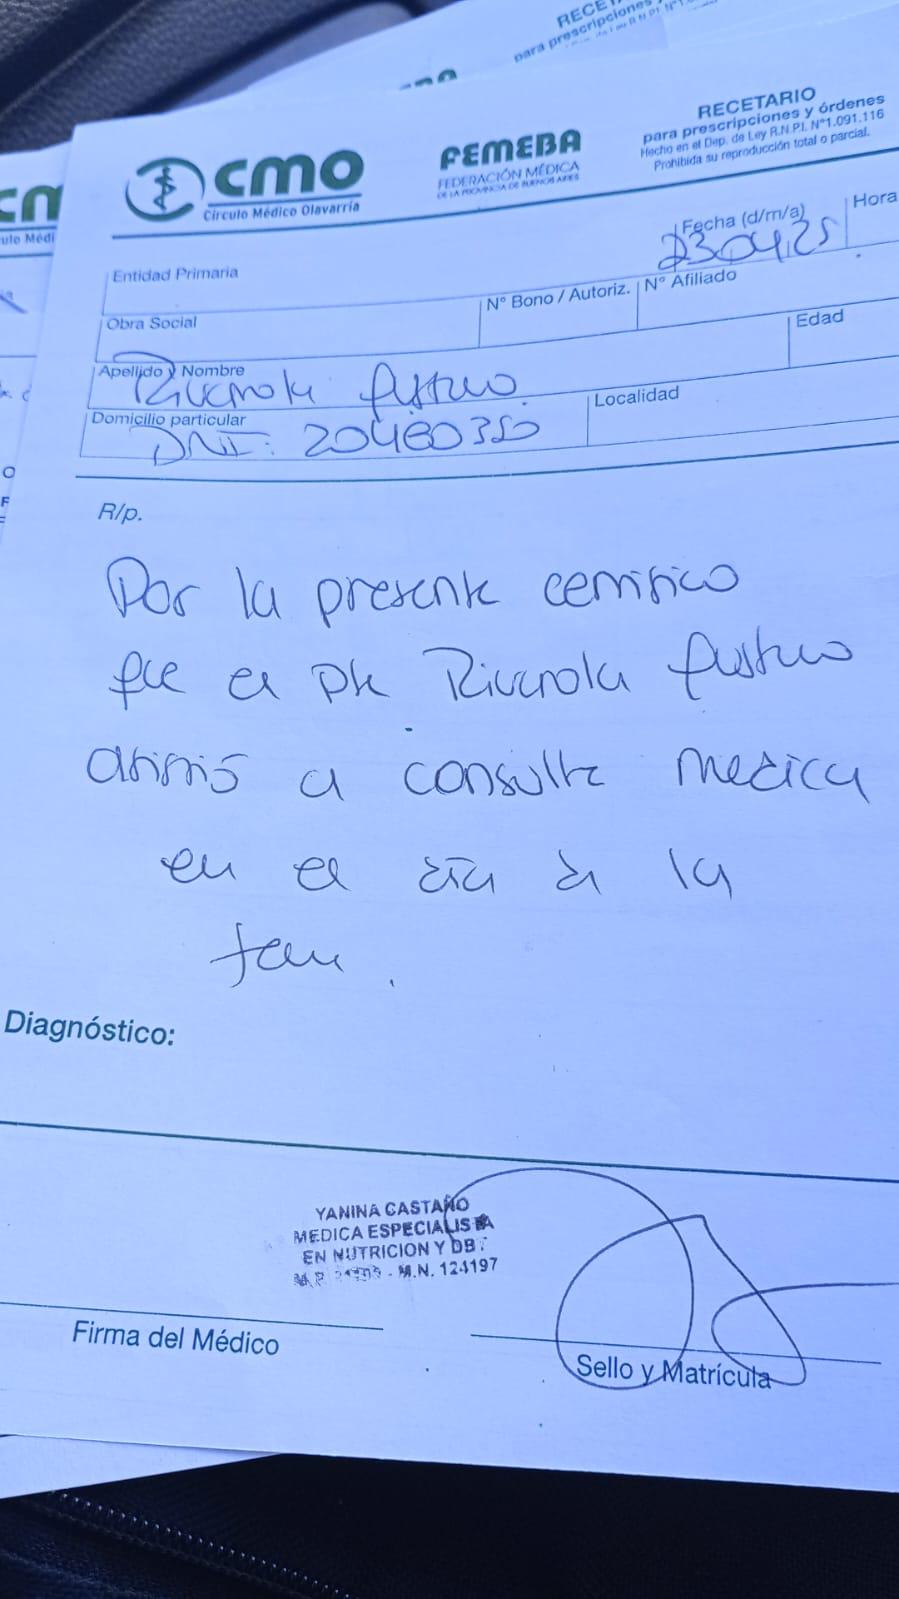 RECETARIO
para prescripciones
CMO
Círculo Médico Olavarría
FEMEBA
FEDERACIÓN MÉDICA
DE LA PROVINCIA DE BUENOS AIRES
RECETARIO
para prescripciones y órdenes
Hecho en el Dep. de Ley R.N.P.I. N°1.091.116
Prohibida su reproducción total o parcial.
Fecha (d/m/a)
Hora
23 04 25
Entidad Primaria
Obra Social
N° Bono / Autoriz.
N° Afiliado
Apellido y Nombre
Riverola Gustavo
Edad
Domicilio particular
DNI: 20460350
Localidad
R/p.
Por la presente certifico
que el pte Riverola Gustavo
asistió a consulta medica
en el día de la
fecha.
Diagnóstico:
YANINA CASTAÑO
MEDICA ESPECIALISTA
EN NUTRICION Y DBT
M.P. - M.N. 124197
Firma del Médico
Sello y Matrícula